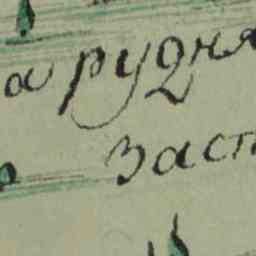 а рудня
заст